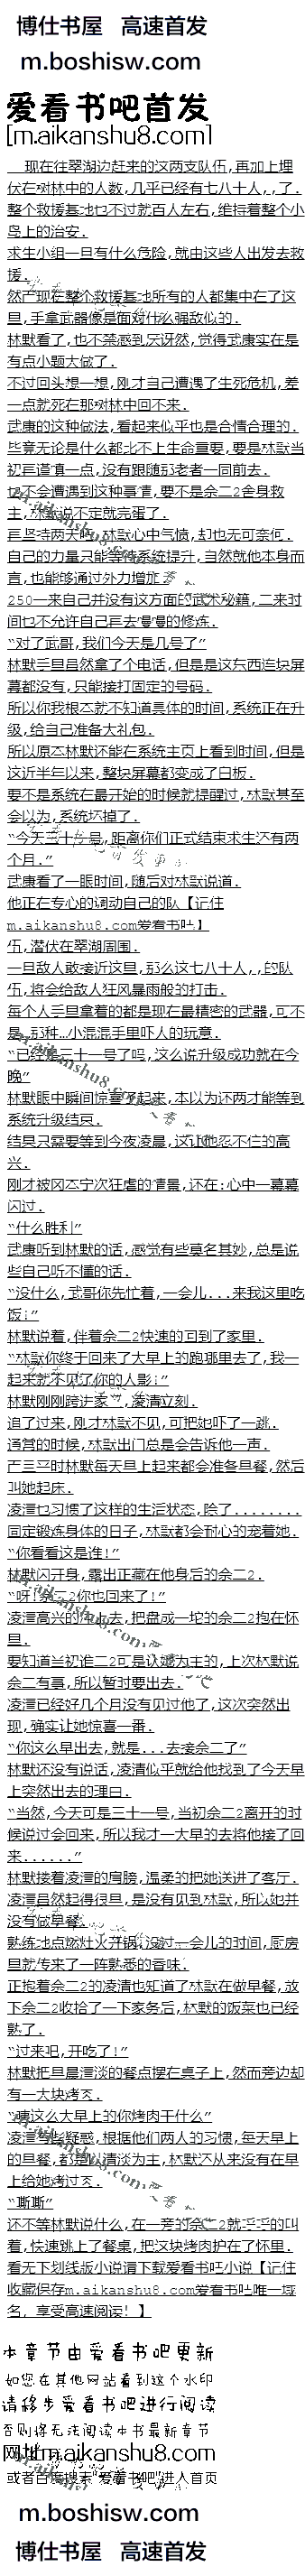 博仕书屋 高速首发
m.boshisw.com
爱看书吧首发
[m.aikanshu8.com]
现在往翠湖边赶来的这两支队伍,再加上埋
伏在树林中的人数,几乎已经有七八十人,,了.
整个救援基地也不过就百人左右,维持着整个小
岛上的治安.
求生小组一旦有什么危险,就由这些人出发去救
援.
然而现在整个救援基地所有的人都集中在了这
里,手拿武器像是面对什么强敌似的.
林默看了,也不禁感到厌讶然,觉得武康实在是
有点小题大做了.
不过回头想一想,刚才自己遭遇了生死危机,差
一点就死在那树林中回不来.
武康的这种做法,看起来似乎也是合情合理的.
毕竟无论是什么都比不上生命重要,要是林默当
初再谨慎一点,没有跟随那老者一同前去.
也不会遭遇到这种事情,要不是余二2舍身救
主,林默说不定就完蛋了.
再坚持两天吧,林默心中气愤,却也无可奈何.
自己的力量只能等待系统提升,当然就他本身而
言,也能够通过外力增加
250一来自己并没有这方面的武术秘籍,二来时
间也不允许自己再去慢慢的修炼.
“对了武哥,我们今天是几号了”
林默手里虽然拿了个电话,但是是这东西连块屏
幕都没有,只能接打固定的号码.
所以你我根本就不知道具体的时间,系统正在升
级,给自己准备大礼包.
所以原本林默还能在系统主页上看到时间,但是
这近半年以来,整块屏幕都变成了白板.
要不是系统在最开始的时候就提醒过,林默甚至
会以为,系统坏掉了.
“今天三十一号,距离你们正式结束求生还有两
个月.”
武康看了一眼时间,随后对林默说道.
他正在专心的调动自己的队【记住
m.aikanshu8.com爱看书吧】
伍,潜伏在翠湖周围.
一旦敌人敢接近这里,那么这七八十人,,的队
伍,将会给敌人狂风暴雨般的打击.
每个人手里拿着的都是现在最精密的武器,可不
是,那种…小混混手里吓人的玩意.
“已经是三十一号了吗,这么说升级成功就在今
晚”
林默眼中瞬间惊喜了起来,本以为还两才能等到
系统升级结束.
结果只需要等到今夜凌晨,这让他忍不住的高
兴.
刚才被冈本宁次狂虐的情景,还在:心中一幕幕
闪过.
“什么胜利”
武康听到林默的话,感觉有些莫名其妙,总是说
些自己听不懂的话.
“没什么,武哥你先忙着,一会儿...来我这里吃
饭!”
林默说着,伴着余二2快速的回到了家里.
“林默你终于回来了大早上的跑哪里去了,我一
起来就不见了你的人影!”
林默刚刚跨进家门,凌清立刻.
追了过来,刚才林默不见,可把她吓了一跳.
通常的时候,林默出门总是会告诉他一声.
而且平时林默每天早上起来都会准备早餐,然后
叫她起床.
凌清也习惯了这样的生活状态,除了........
固定锻炼身体的日子,林默都会耐心的宠着她.
“你看看这是谁!”
林默闪开身,露出正藏在他身后的余二2.
“呀!余二2你也回来了!”
凌清高兴的冲上去,把盘成一坨的余二2抱在怀
里.
要知道当初谁二2可是认她为主的,上次林默说
余二有事,所以暂时要出去.
凌清已经好几个月没有见过他了,这次突然出
现,确实让她惊喜一番.
“你这么早出去,就是...去接余二了”
林默还没有说话,凌清似乎就给他找到了今天早
上突然出去的理由.
“当然,今天可是三十一号,当初余二2离开的时
候说过会回来,所以我才一大早的去将他接了回
来......”
林默搂着凌清的肩膀,温柔的把她送进了客厅.
凌清虽然起得很早,是没有见到林默,所以她并
没有做早餐.
熟练地点燃灶火开锅,没过一会儿的时间,厨房
里就传来了一阵熟悉的香味.
正抱着余二2的凌清也知道了林默在做早餐,放
下余二2收拾了一下家务后,林默的饭菜也已经
熟了.
“过来吧,开吃了!”
林默把早晨清淡的餐点摆在桌子上,然而旁边却
有一大块烤肉.
“咦这么大早上的你烤肉干什么”
凌清有些疑惑,根据他们两人的习惯,每天早上
的早餐,都是以清淡为主,林默还从来没有在早
上给她烤过肉.
“嘶嘶”
还不等林默说什么,在一旁的余二2就乎乎的叫
着,快速跳上了餐桌,把这块烤肉护在了怀里.
看无下划线版小说请下载爱看书吧小说【记住
收藏保存m.aikanshu8.com爱看书吧唯一域
名, 享受高速阅读!】
本章节由爱看书吧更新
如您在其他网站看到这个水印
请移步爱看书吧进行阅读
否则将无法阅读本书最新章节
网址m.aikanshu8.com
或者百度搜索"爱看书吧"进入首页
m.boshisw.com
博仕书屋 高速首发